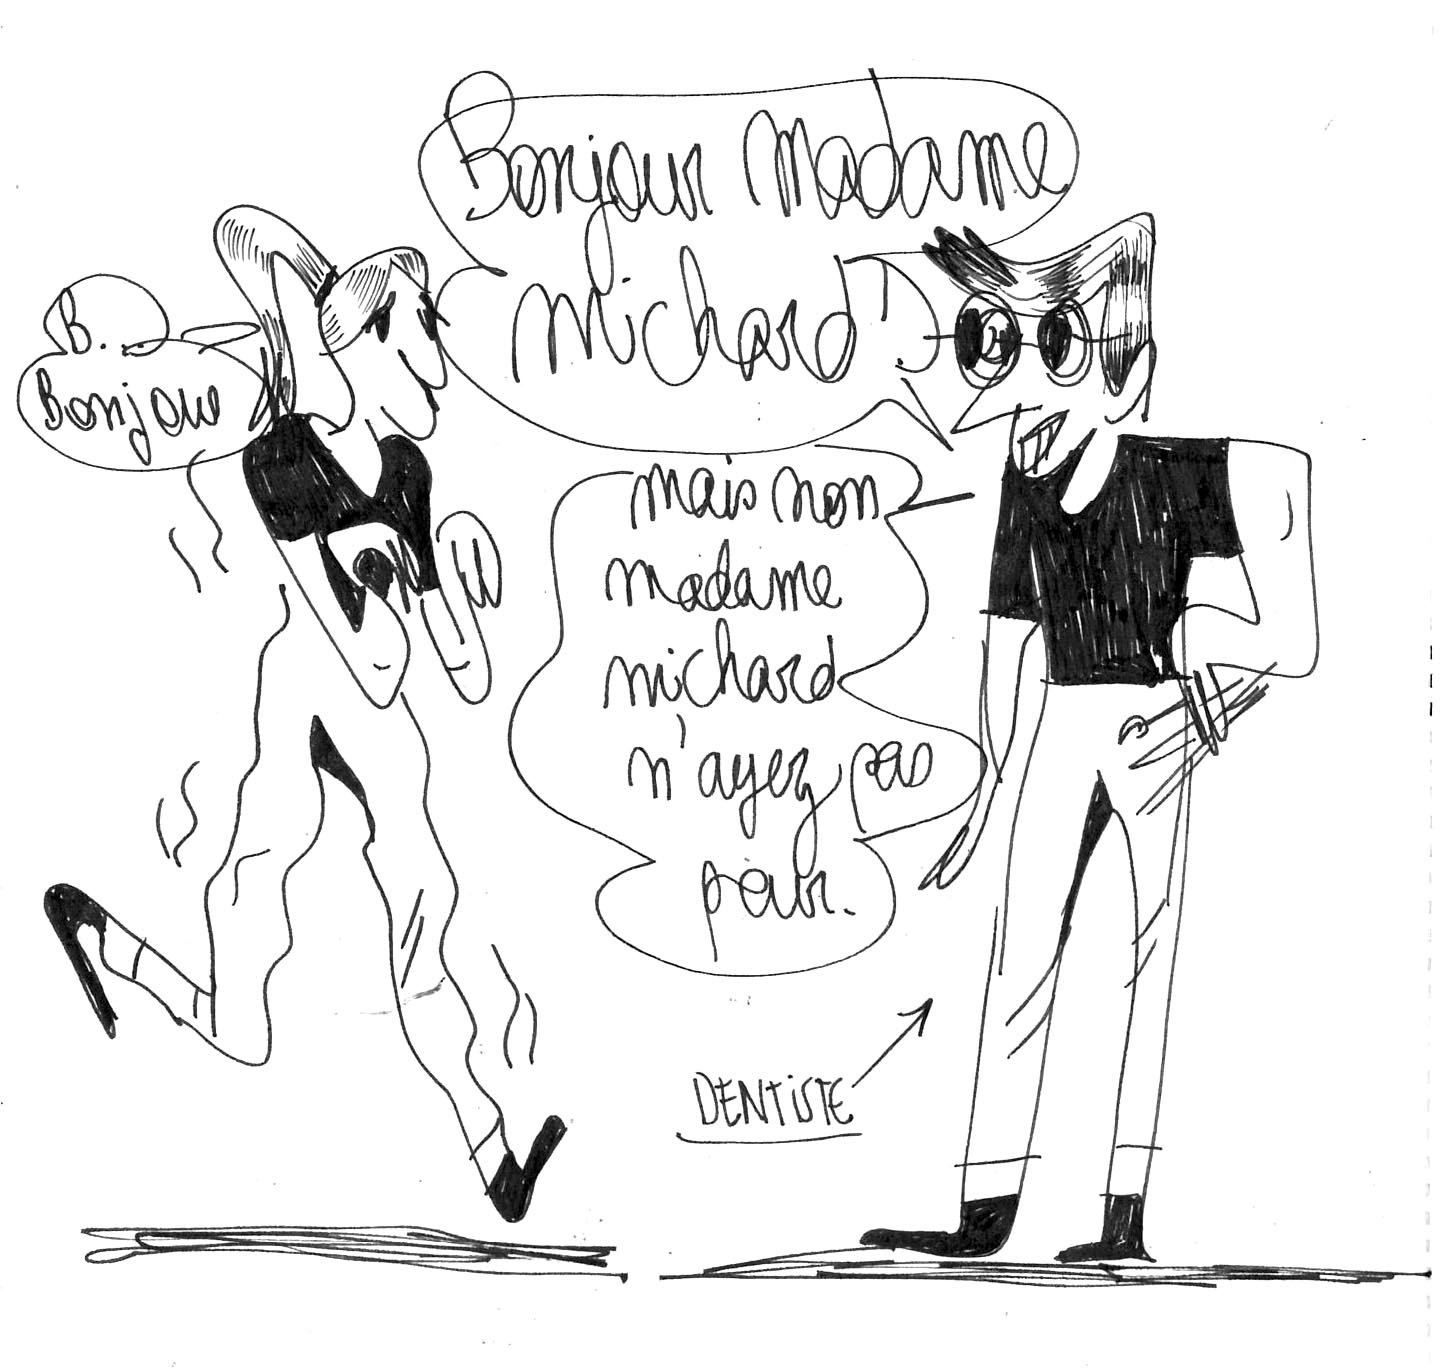 Bonjour Madame
Michard !
B...
Bonjour
mais non
madame
michard
n'ayez pas
peur.
DENTISTE